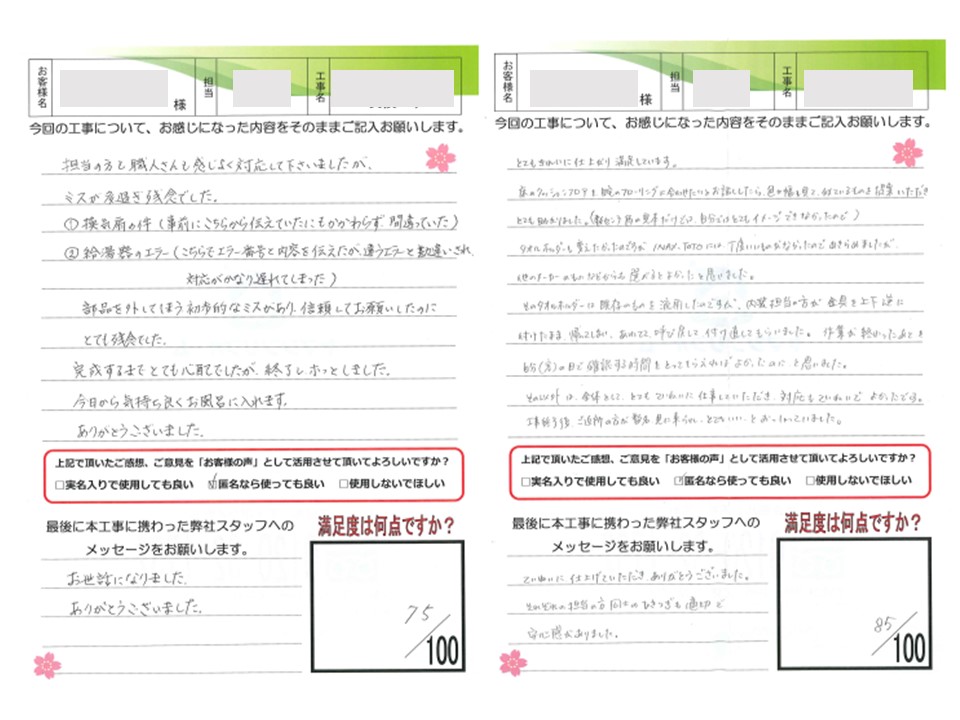 お客様名
様
担当
工事名
今回の工事について、お感じになった内容をそのままご記入お願いします。
担当の方も職人さんも感じよく対応して下さいましたが、
ミスが多過ぎ残念でした。
①換気扇の件(事前にこちらから伝えていたにもかかわらず、間違っていた)
②給湯器のエラー(こちらでエラー番号と内容を伝えたが、違うエラーと勘違いされ、
対応がかなり遅れてしまった)
部品を外してしまう初歩的なミスがあり、信頼してお願いしたのに
とても残念でした。
完成するまでとても心配でしたが、終了しホッとしました。
今日から気持ち良くお風呂に入れます。
ありがとうございました。
上記で頂いたご感想、ご意見を「お客様の声」として活用させて頂いてよろしいですか?
□実名入りで使用しても良い ☑匿名なら使っても良い □使用しないでほしい
最後に本工事に携わった弊社スタッフへの
メッセージをお願いします。
お世話になりました。
ありがとうございました。
満足度は何点ですか?
75/100
お客様名
様
担当
工事名
今回の工事について、お感じになった内容をそのままご記入お願いします。
とてもきれいに仕上がり満足しています。
床のクッションフロアを、既のフローリングに合わせたいとお話したら、色や幅も見て、似ているものを提案いただき
とても助かりました。(見本だけでは、自分ではとてもイメージできなかったので)
タオルホルダーも変えたかったのですが INAX、TOTOには、丁度いいものがなかったのであきらめましたが、
他のメーカーのものなどからも選べるとよかったと思いました。
そのタオルホルダーは既存のものを流用したのですが、内装担当の方が金具を上下逆に
付けたまま帰ってしまい、あわてて呼び戻して付け直してもらいました。作業が終わったあと、
自分(客)の目で確認する時間をとってもらえればよかったのに と思いました。
それ以外は、全体として、とてもていねいに仕事していただき、対応もていねいでよかったです。
工事終了後、ご近所の方が数名見に来られ、とてもいい、とおっしゃっていました。
上記で頂いたご感想、ご意見を「お客様の声」として活用させて頂いてよろしいですか?
□実名入りで使用しても良い ☑匿名なら使っても良い □使用しないでほしい
最後に本工事に携わった弊社スタッフへの
メッセージをお願いします。
ていねいに仕上げていただき、ありがとうございました。
それぞれの担当の方同士のひきつぎも適切で
安心感がありました。
満足度は何点ですか?
85/100